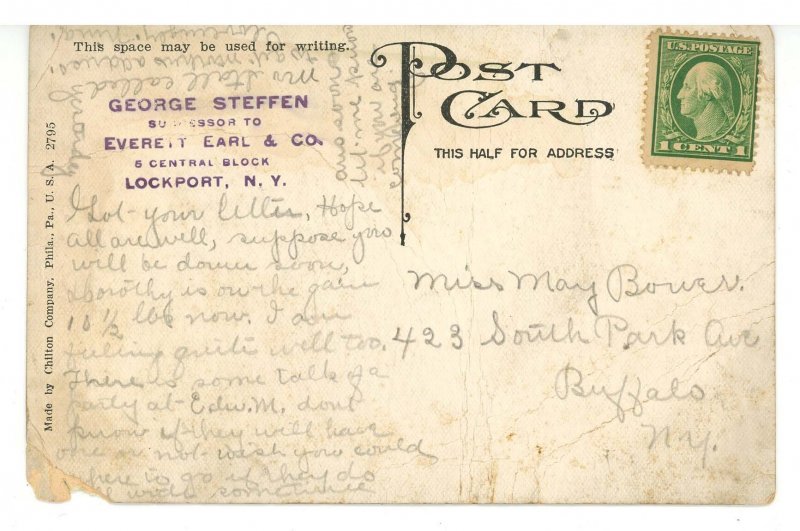 This space may be used for writing.
POST CARD
THIS HALF FOR ADDRESS
U.S. POSTAGE
1 CENT 1
GEORGE STEFFEN
SUCCESSOR TO
EVERETT EARL & CO.
5 CENTRAL BLOCK
LOCKPORT, N. Y.
Made by Chilton Company, Phila., Pa., U. S. A. 2795
Got your letter, Hope
all are well, suppose you
will be down soon,
Dorothy is on the gain
10 ½ lbs now. I am
feeling quite well too.
There is some talk of a
party at Edw. M. dont
know if they will have
one or not wish you could
here to go if they do
will write sometime
Mrs Stall called
yesterday
Miss May Bower.
423 South Park Ave
Buffalo
N.Y.